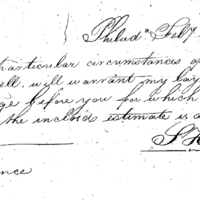 Philada Feby
particular circumstances of
ell. will warrant my lay
ge before you for which
the inclosd estimate is a
S
nce